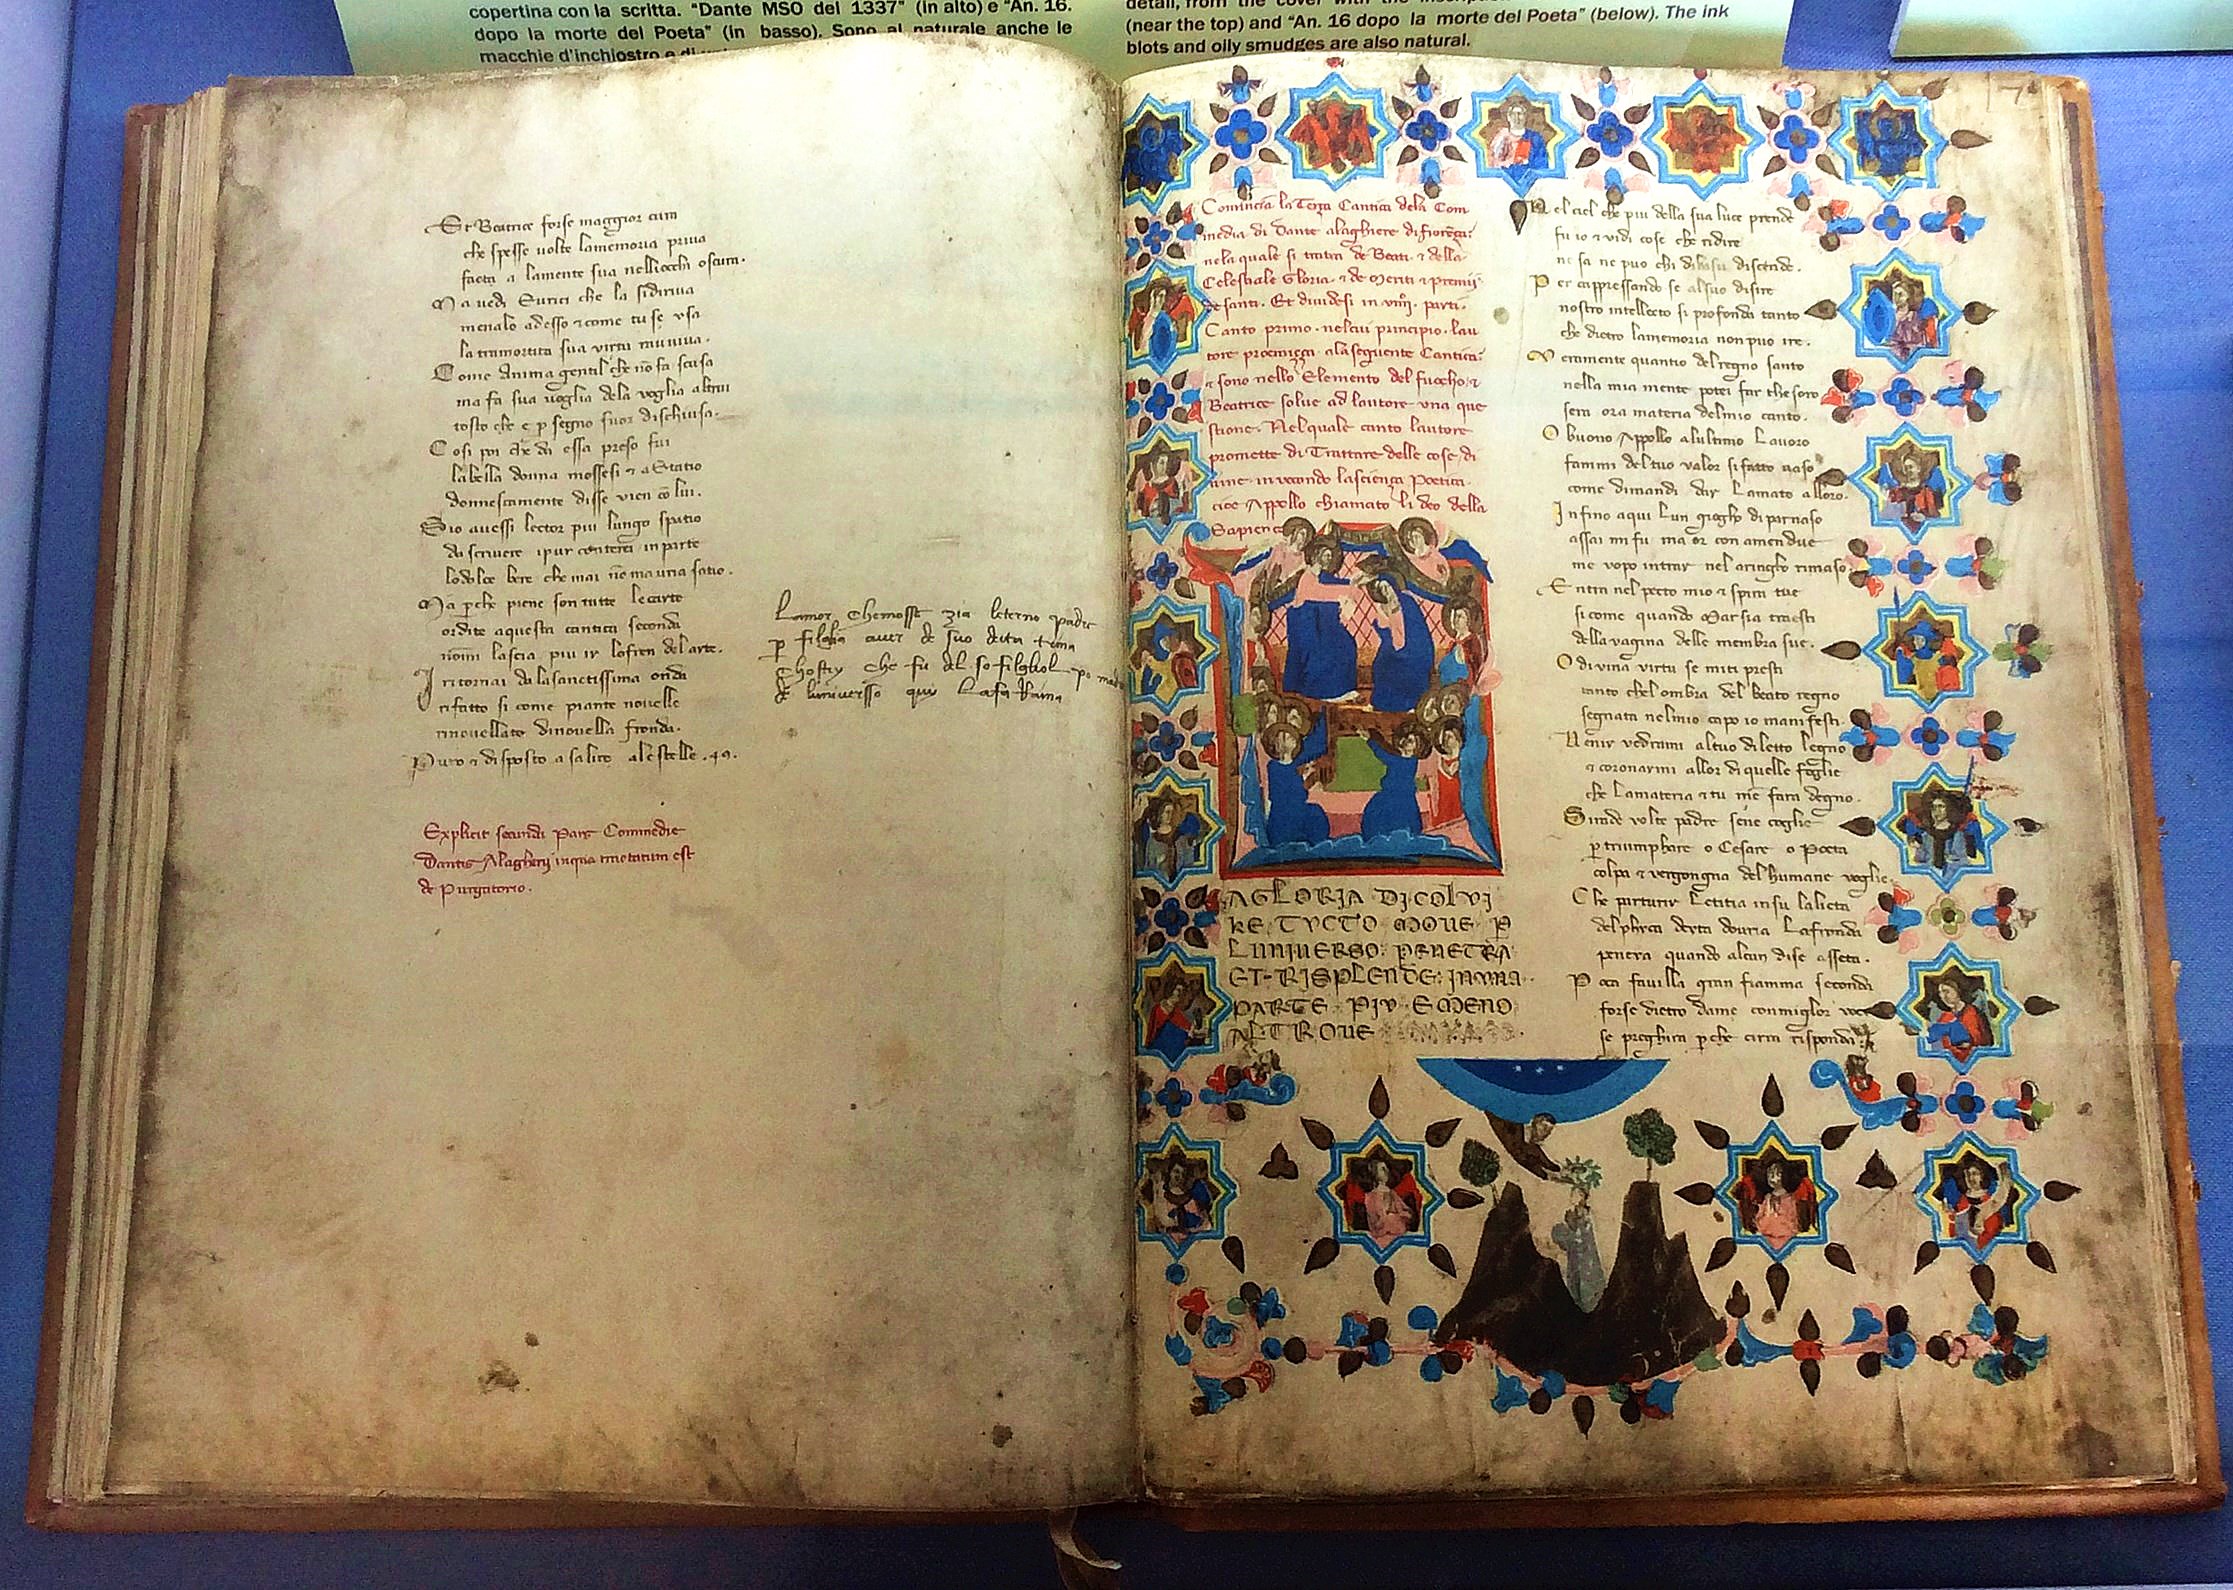 copertina con la scritta. “Dante MSO del 1337” (in alto) e “An. 16.
dopo la morte del Poeta” (in basso). Sono al naturale anche le
macchie d'inchiostro e di
detail, from the cover with the
(near the top) and “An. 16 dopo la morte del Poeta” (below). The ink
blots and oily smudges are also natural.
Et Beatrice forse maggior cura
che spesse uolte lamemoria priua
facta a lamente sua nelliocchi oscura.
Ma uedi Eunoi che la sidiriua
menalo adesso ⁊ come tu se usa
la tramortita sua uirtu rauuiua.
Come Anima gentil che nō fa scusa
ma fa sua uoglia dela uoglia altrui
tosto che e p segno fuor dischiusa.
Cosi poi che da essa preso fui
la bella donna mossesi ⁊ a Statio
donnescamente disse uien cō lui.
Sio auessi lector piu lungo spatio
da scriuere ipur cantere in parte
lo dolce bere che mai nō mauria satio.
Ma pche piene son tutte lecarte
ordite aquesta cantica seconda
nōmi lascia piu ir lofren delarte.
I ritornai da lasanctissima onda
rifatto si come piante nouelle
rinouellate dinouella fronda.
Puro ⁊ disposto a salire alestelle.
Explicit secunda Pars Commedie
Dantis Alagherij inqua tractatum est
de Purgatorio.
Lamor chemosse zia leterno padre
p figlia auer de suo
che fu del so
de luniuersso qui
Comincia la Terza Cantica dela Com
media di Dante alaghiere di fiorēça:
nela quale si tratta de Beati. ⁊ della
Celestiale Gloria. ⁊ de meriti ⁊ premij
de santi. Et diuidesi in parti.
Canto primo. nelcui principio. lau
tore proemiça ala sequente Cantica:
⁊ sono nello Elemento del fuocho. ⁊
Beatrice solue ad lautore una que
stione. Nelquale canto lautore
promette di Trattare delle cose di
uine. inuocando lasciença Poetica.
cioe Appollo chiamato li deo della
Sapiença
AGLORIA DI COLVI
KE TVCTO MOVE P
LUNIUERSO: PENETRA
ET RISPLENDE: IN VNA
PARTE PIV E MENO
ALTROUE
Nel ciel che piu della sua luce prende
fu io ⁊ uidi cose che ridire
ne sa ne puo chi dilasu discende.
Per cappressando se alsuo disire
nostro intellecto si profonda tanto
che dietro lamemoria non puo ire.
Veramente quantio del regno santo
nella mia mente potei far thesoro
sera ora materia delmio canto.
O buono Appollo alultimo Lauoro
fammi deltuo ualor si fatto uaso
come dimandi dar Lamato alloro.
Infino aqui lun giogho di parnaso
assai mi fu ma or con amendue
me uopo intrar nel aringho rimaso.
Entra nel pecto mio ⁊ spira tue
si come quando Marsia traesti
della uagina delle membra sue.
O diuina uirtu se miti presti
tanto chel ombra del beato regno
segnata nelmio capo io manifesti.
Venir uedrami altuo diletto legno
⁊ coronarmi allor di quelle foglie
che Lamateria ⁊ tu me fara degno.
Sirade uolte padre sene coglie
p triumphare o Cesare o Poeta
colpa ⁊ uergongna del humane uoglie.
Che parturir Letitia in su la lieta
delphyca deyta douria Lafronda
peneya quando alcun dise asseta.
Poca fauilla gran fiamma seconda
forse dietro dame conmiglor uoce
se preghira pche cirra risponda.